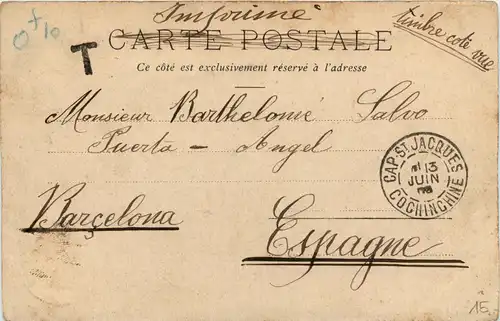 Imprimé
timbre coté vue
0+10
T
CARTE POSTALE
Ce côté est exclusivement réservé à l'adresse
Monsieur Barthelomé Salvo
Puerta - Angel
CAP-ST JACQUES
13
JUIN
COCHINCHINE
Barçelona
Espagne
15.